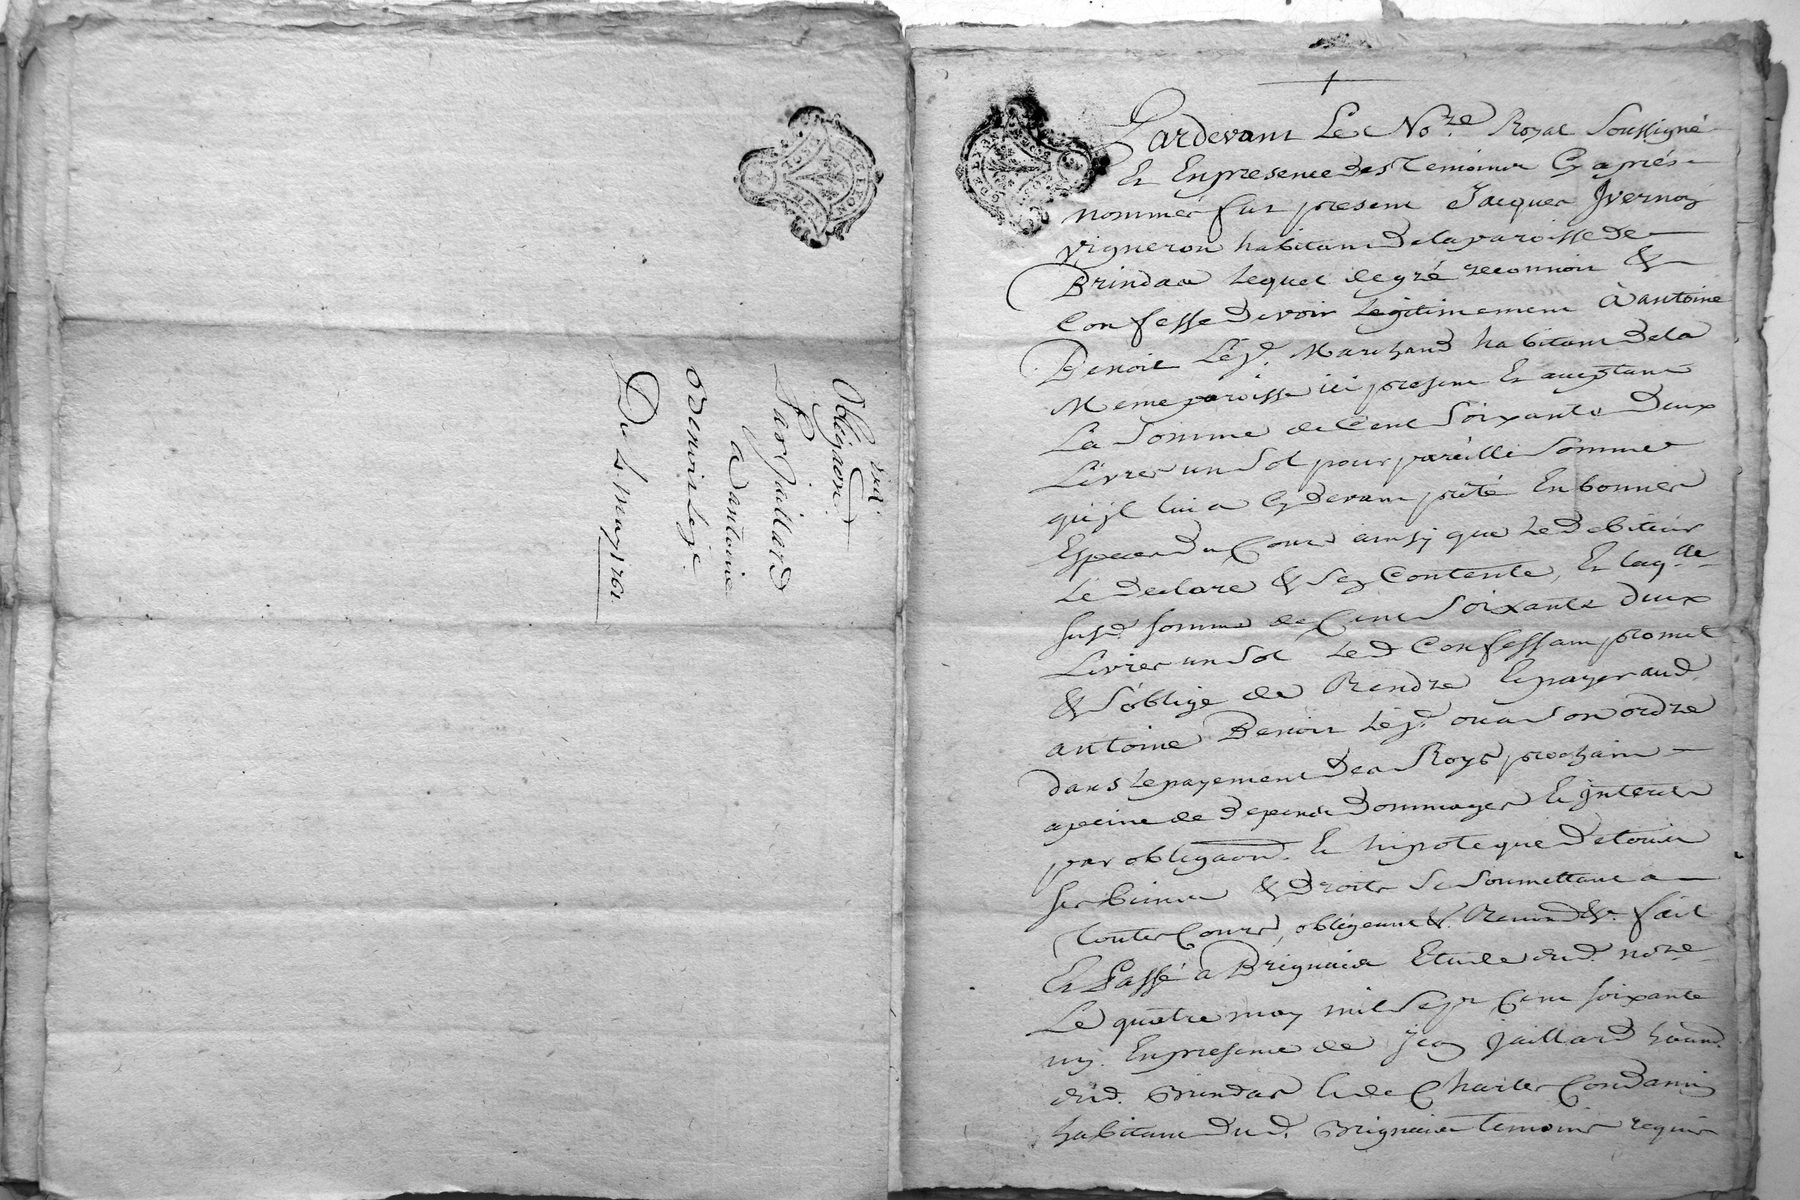 Obligaõn
Par Jaillard
a antoine
Benoit le j.e
Du 4 may 1761
Pardevant Le No.re Royal Soussigné
Et En presence des Temoins Cy aprés
nommés fut present Jacques
vigneron habitant de la paroisse de
Brindas Lequel de gré reconnoit &
Confesse devoir Legitimement à antoine
Benoit Le j.e Marchand habitant de la
Meme paroisse ici present Et aceptant
La Somme de Cent Soixante Deux
Livres un Sol pour pareille Somme
qu'jl lui a Cy devant prété En bonnes
Especes du Cours ainsy que Le Debiteur
Le declare & s'en Contente, Et laq.lle
susd. somme de Cent Soixante Deux
Livres un Sol Led Confessant promet
& S'oblige de Rendre Et payer aud.
antoine Benoit Le j.e ou a Son ordre
dans Le payement des Roys prochain
a peine de depends Dommages Et Interets
par obligaõn. Et hipoteque De tous
ses biens & Droits Se Soumettant a
toutes Cours, obligeant &. Renond &. fait
Et Passé a Brignais Etude dud. no.re
Le quatre may mil Sept Cent soixante
un. En presence de Jaillard
dud. Brindas Et de Charles Condamin
habitant Dud. Brignais temoins requis